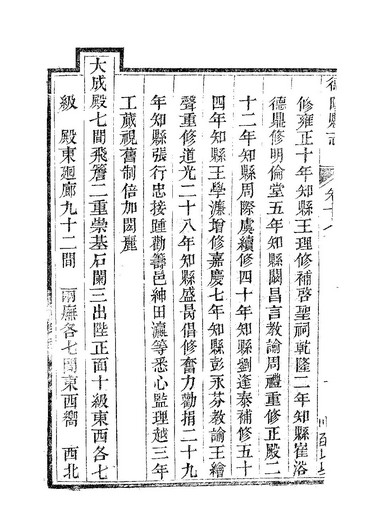 修雍正十年知縣王理修補啓聖祠乾隆二年知縣崔洛
德鼎修明倫堂五年知縣闕昌言教諭周禮重修正殿二
十二年知縣周際虞續修四十年知縣劉逢泰補修五十
四年知縣王學濂增修嘉慶七年知縣彭永芬教諭王繪
聲重修道光二十八年知縣盛昺倡修奮力勸捐二十九
年知縣張行忠接踵勸籌邑紳田瀛等悉心監理越三年
工蕆視舊制倍加閎麗
大成殿七間飛簷二重崇基石闌三出陛正面十級東西各七
級 殿東廻廊九十二間 兩廡各七間東西嚮 西北